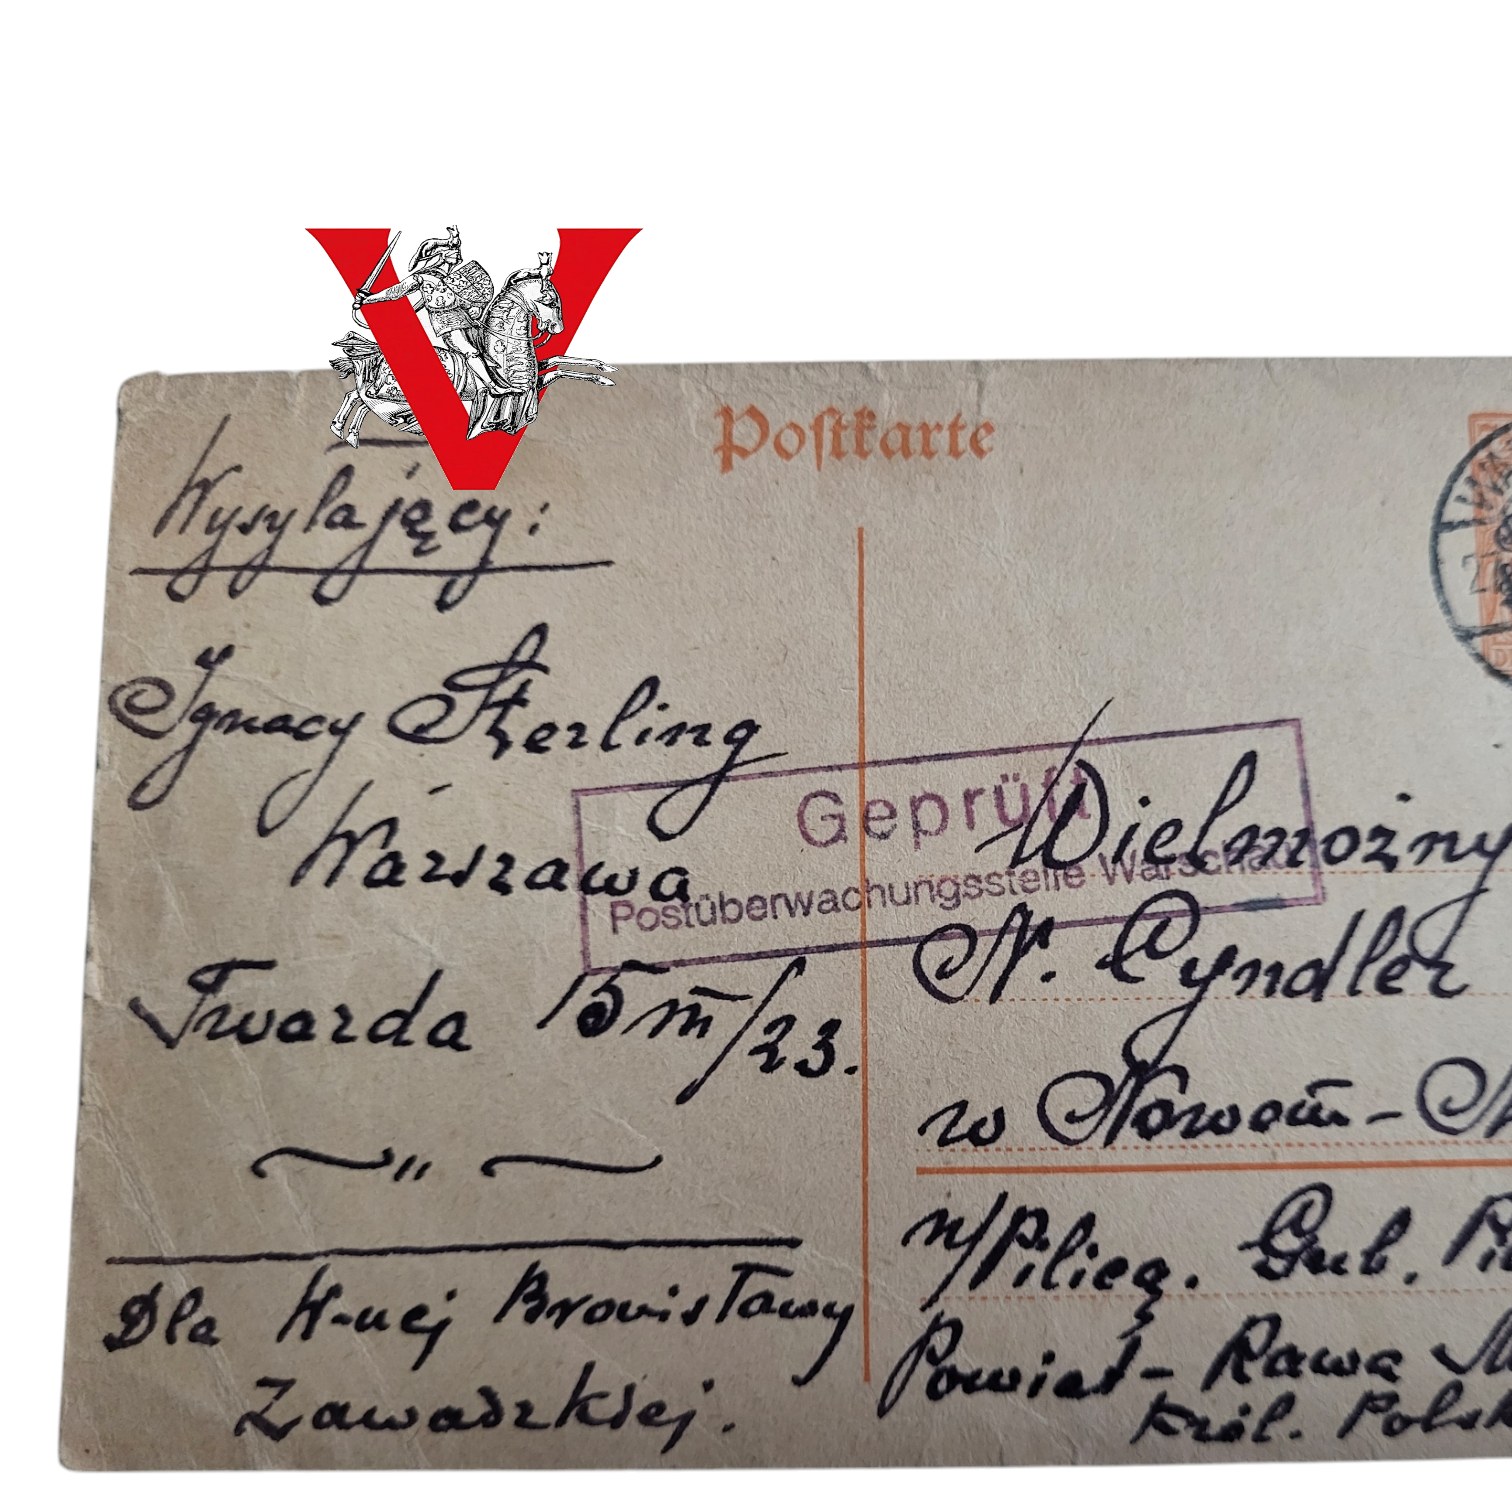 V
Postkarte
Wysyłający:
Ignacy Szterling
Warszawa
Twarda 15 m/23.
Dla W-nej Bronisławy
Zawadzkiej.
Geprüft
Postüberwachungsstelle Warschau
Wielmożny
N. Cyndler
w Nowem-
n/Pilicą. Gub.
Powiat- Rawa
Król. Polsk